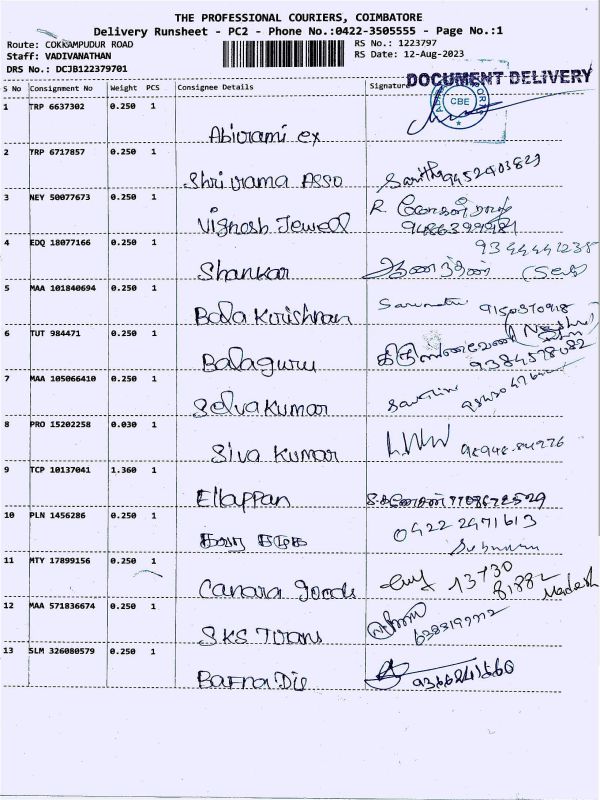 THE PROFESSIONAL COURIERS, COIMBATORE
Delivery Runsheet - PC2 - Phone No.:0422-3505555 - Page No.:1
Route: COKKAMPUDUR ROAD RS No.: 1223797
Staff: VADIVANATHAN RS Date: 12-Aug-2023
DRS No.: DCJB122379701
DOCUMENT DELIVERY
S No Consignment No Weight PCS Consignee Details Signature
CBE
1 TRP 6637302 0.250 1
Abirami ex
2 TRP 6717857 0.250 1
Shri rama Asso 9452903829
3 NEY 50077673 0.250 1
Vignesh Jewel R.
9486399981
4 EDQ 18077166 0.250 1 9344441235
Shankar ஆனந்தன்
5 MAA 101840694 0.250 1
Bala Krishnan 9150370918
6 TUT 984471 0.250 1
Balaguru 9384578082
7 MAA 105066410 0.250 1
Selva Kumar
8 PRO 15202258 0.030 1
Siva Kumar
9 TCP 10137041 1.360 1
Ellappan
10 PLN 1456286 0.250 1
0422 2471613
11 MTY 17899156 0.250 1
Canara goods 13730
81882 Madesh
12 MAA 571836674 0.250 1
SKS Trans
13 SLM 326080579 0.250 1
Barna Die